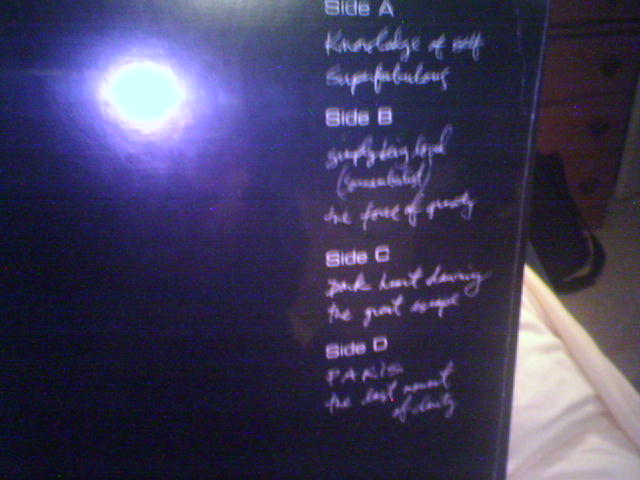 Side A
Knowledge of self
Superfabulous
Side B
simply being loved
(somnambulist)
the force of gravity
Side C
Dark heart dawning
the great escape
Side D
PARIS
the last moment
of clarity